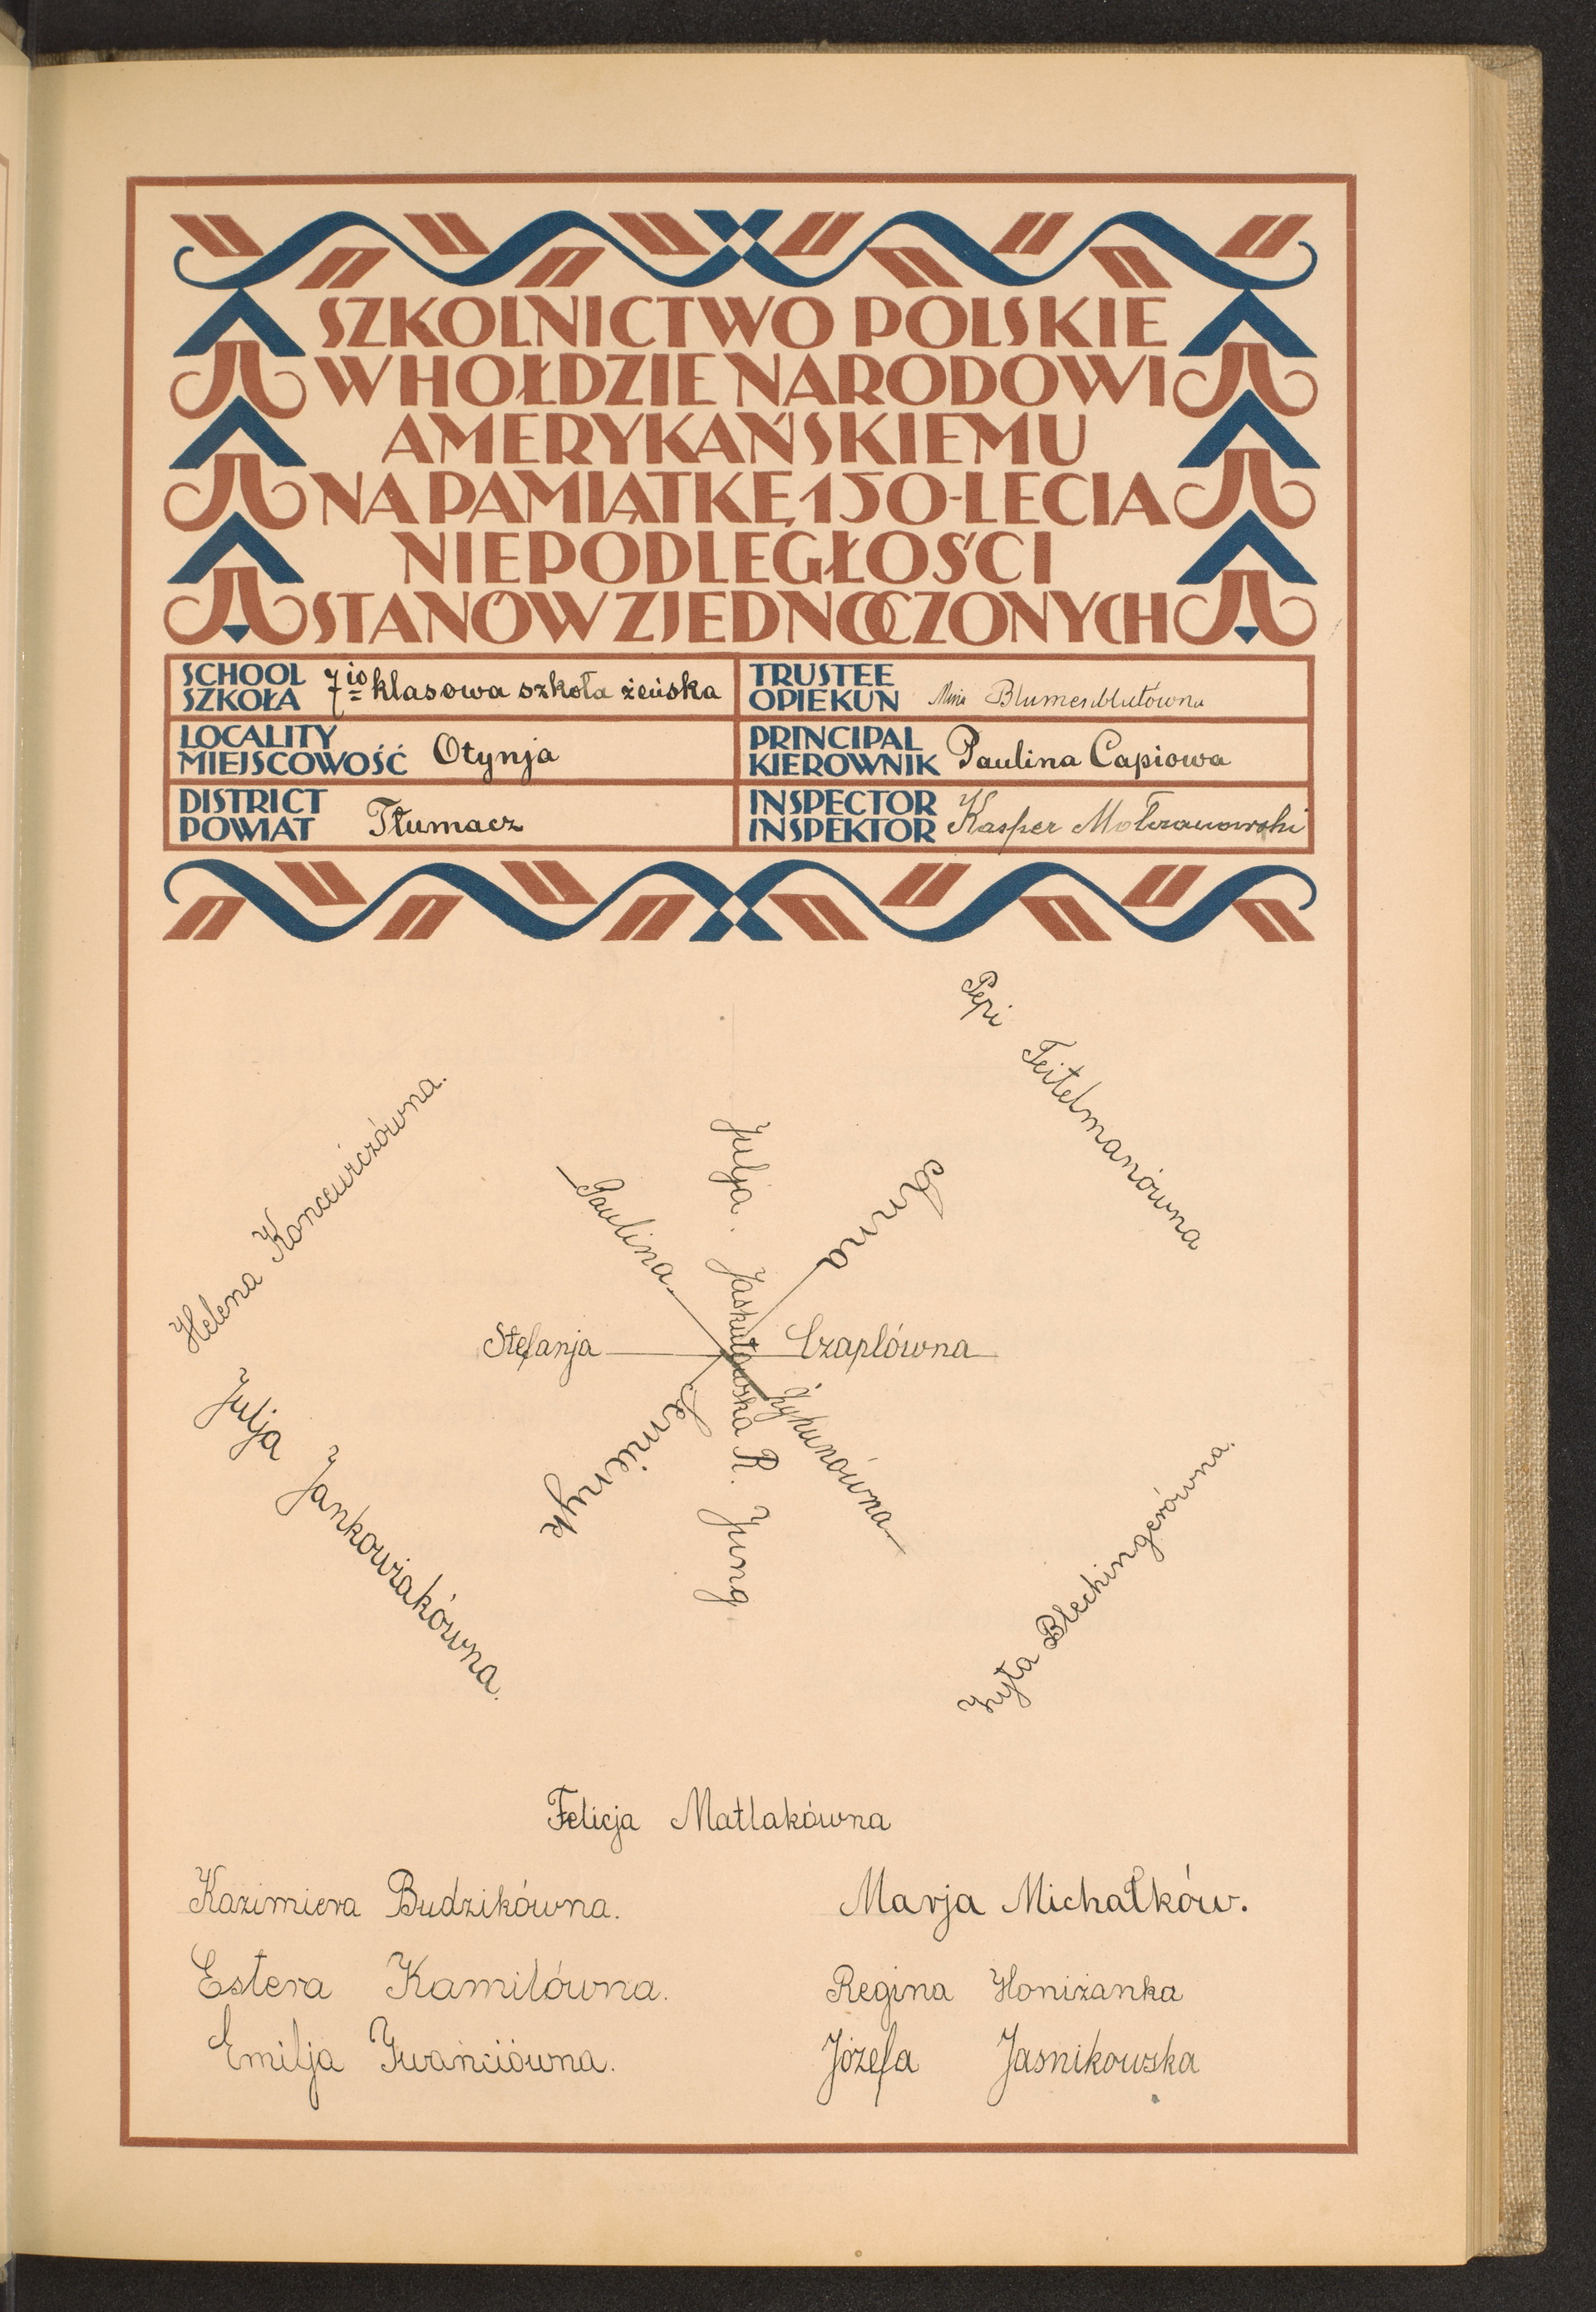 SZKOLNICTWO POLSKIE
W HOŁDZIE NARODOWI
AMERYKAŃSKIEMU
NA PAMIĄTKĘ 150-LECIA
NIEPODLEGŁOŚCI
STANÓW ZJEDNOCZONYCH
SCHOOL
SZKOŁA 7io klasowa szkoła żeńska
TRUSTEE
OPIEKUN
LOCALITY
MIEJSCOWOŚĆ Otynja
PRINCIPAL
KIEROWNIK Paulina Capiowa
DISTRICT
POWIAT Tłumacz
INSPECTOR
INSPEKTOR Kasper
Pepi Teitelmanówna
Helena Koncewiczówna.
Julja. Jaskułowska R. Jung
Paulina. Zyhunówna
Anna Semienyk
Stefanja Czaplówna
Julja Jankowiakówna.
Zyta Blechingerówna.
Felicja Matlakówna
Kazimiera Budzikówna.
Marja Michałków.
Estera Kamilówna.
Regina Honiżanka
Emilja Iwanciówna.
Józefa Jasnikowska